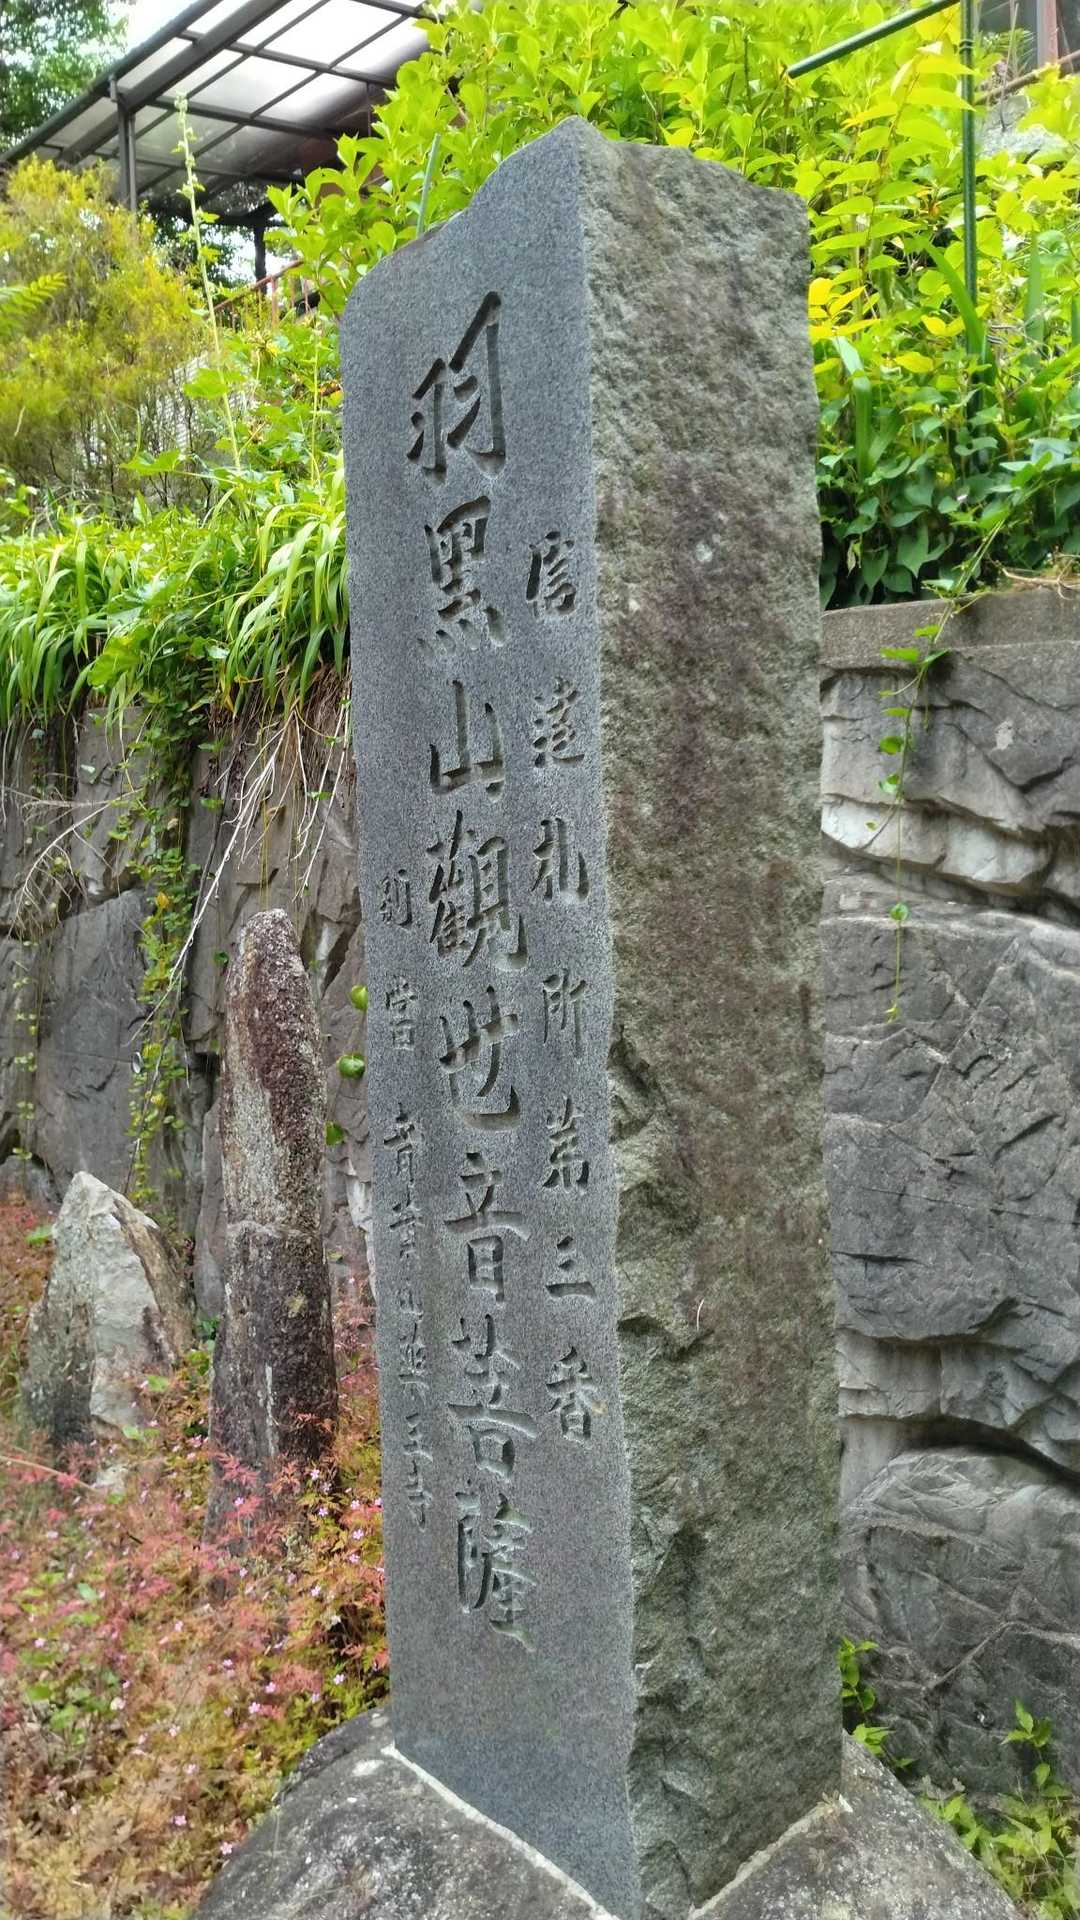 信達札所第三番
羽黒山觀世音菩薩
別當青葉山薬王寺